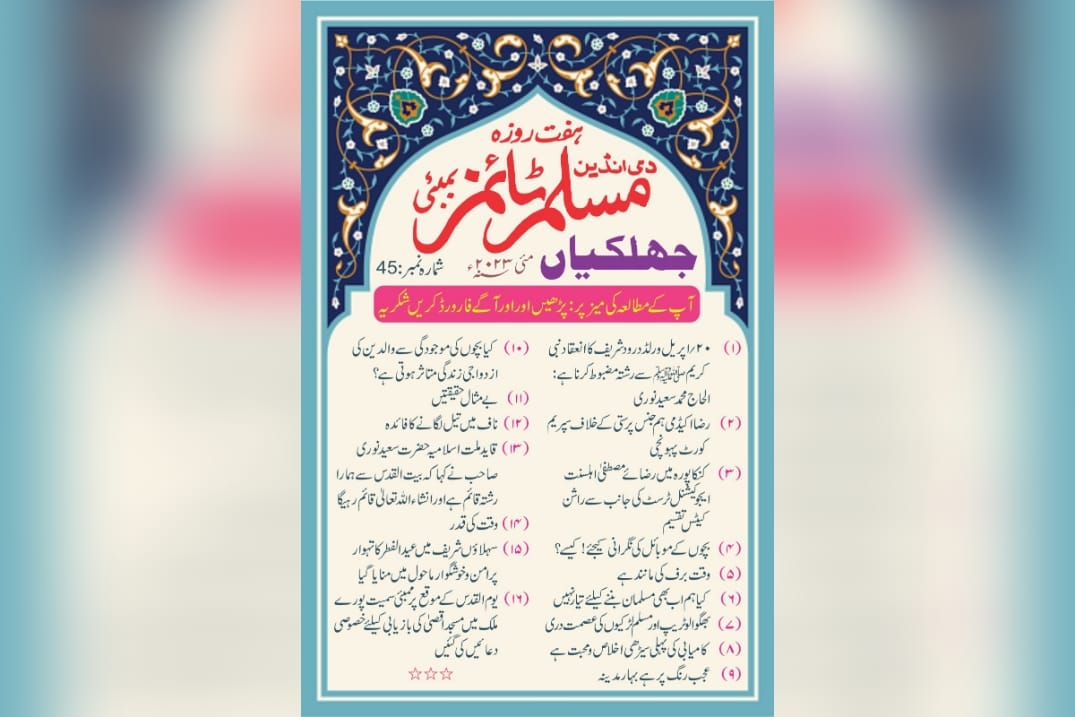 ہفت روزہ
دی انڈین
مسلم ٹائمز بمبئی
جھلکیاں مئی ۲۰۲۳ء شمارہ نمبر: 45
آپ کے مطالعہ کی میز پر: پڑھیں اور اور آگے فارورڈ کریں شکریہ
(۱) ۲۰؍اپریل ورلڈ درود شریف کا انعقاد نبی
کریم ﷺ سے رشتہ مضبوط کرنا ہے:
الحاج محمد سعید نوری
(۲) رضا اکیڈمی ہم جنس پرستی کے خلاف سپریم
کورٹ پہونچی
(۳) کنکاپورہ میں رضائے مصطفیٰ اہلسنت
ایجوکیشنل ٹرسٹ کی جانب سے راشن
کیٹس تقسیم
(۴) بچوں کے موبائل کی نگرانی کیجئے! کیسے؟
(۵) وقت برف کی مانند ہے
(۶) کیا ہم اب بھی مسلمان بننے کیلئے تیار نہیں
(۷) بھگوا لو ٹریپ اور مسلم لڑکیوں کی عصمت دری
(۸) کامیابی کی پہلی سیڑھی اخلاص و محبت ہے
(۹) عجب رنگ پر ہے بہار مدینہ
(۱۰) کیا بچوں کی موجودگی سے والدین کی
ازدواجی زندگی متاثر ہوتی ہے؟
(۱۱) بے مثال حقیقتیں
(۱۲) ناف میں تیل لگانے کا فائدہ
(۱۳) قاید ملت اسلامیہ حضرت سعید نوری
صاحب نے کہا کہ بیت القدس سے ہمارا
رشتہ قائم ہے اور انشاء اللہ تعالیٰ قائم رہیگا
(۱۴) وقت کی قدر
(۱۵) سہلاؤں شریف میں عید الفطر کا تہوار
پر امن و خوشگوار ماحول میں منایا گیا
(۱۶) یوم القدس کے موقع پر ممبئی سمیت پورے
ملک میں مسجد اقصیٰ کی بازیابی کیلئے خصوصی
دعائیں کی گئیں
☆☆☆